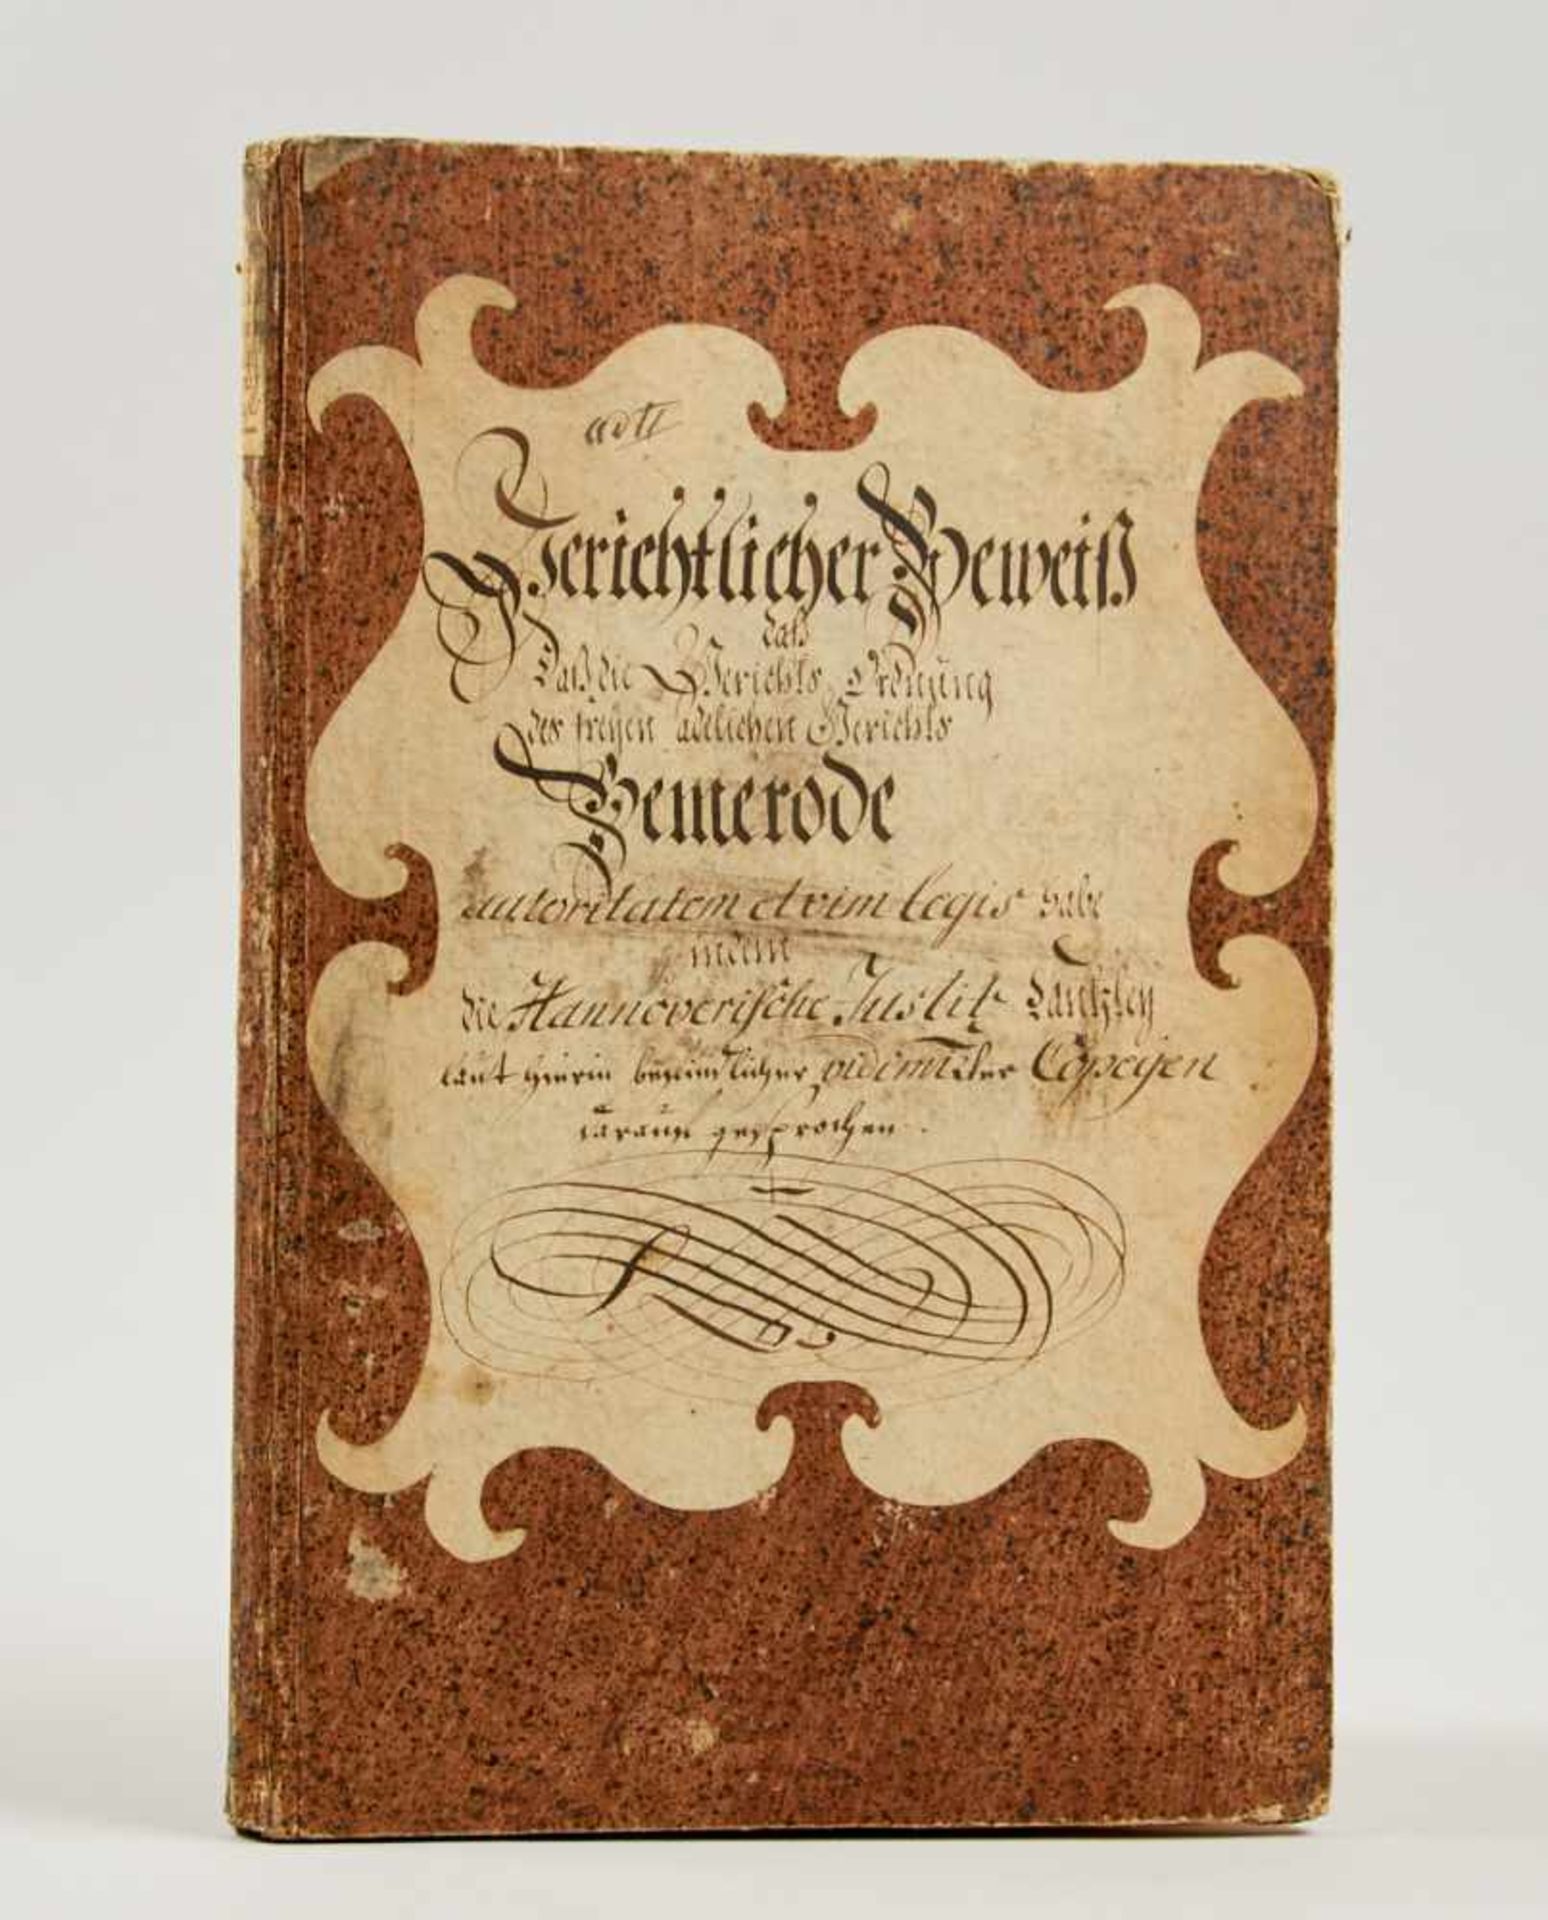 Gerichtlicher Beweiß
daß
Daß die Gerichts Ordnung
des freyen adelichen Gerichts
Bemerode
autoritatem et vim legis habe
die Hannöverische Justitz Cantzley
laut hierin befindlicher vidimirter Copeyen
darauf gesprochen.